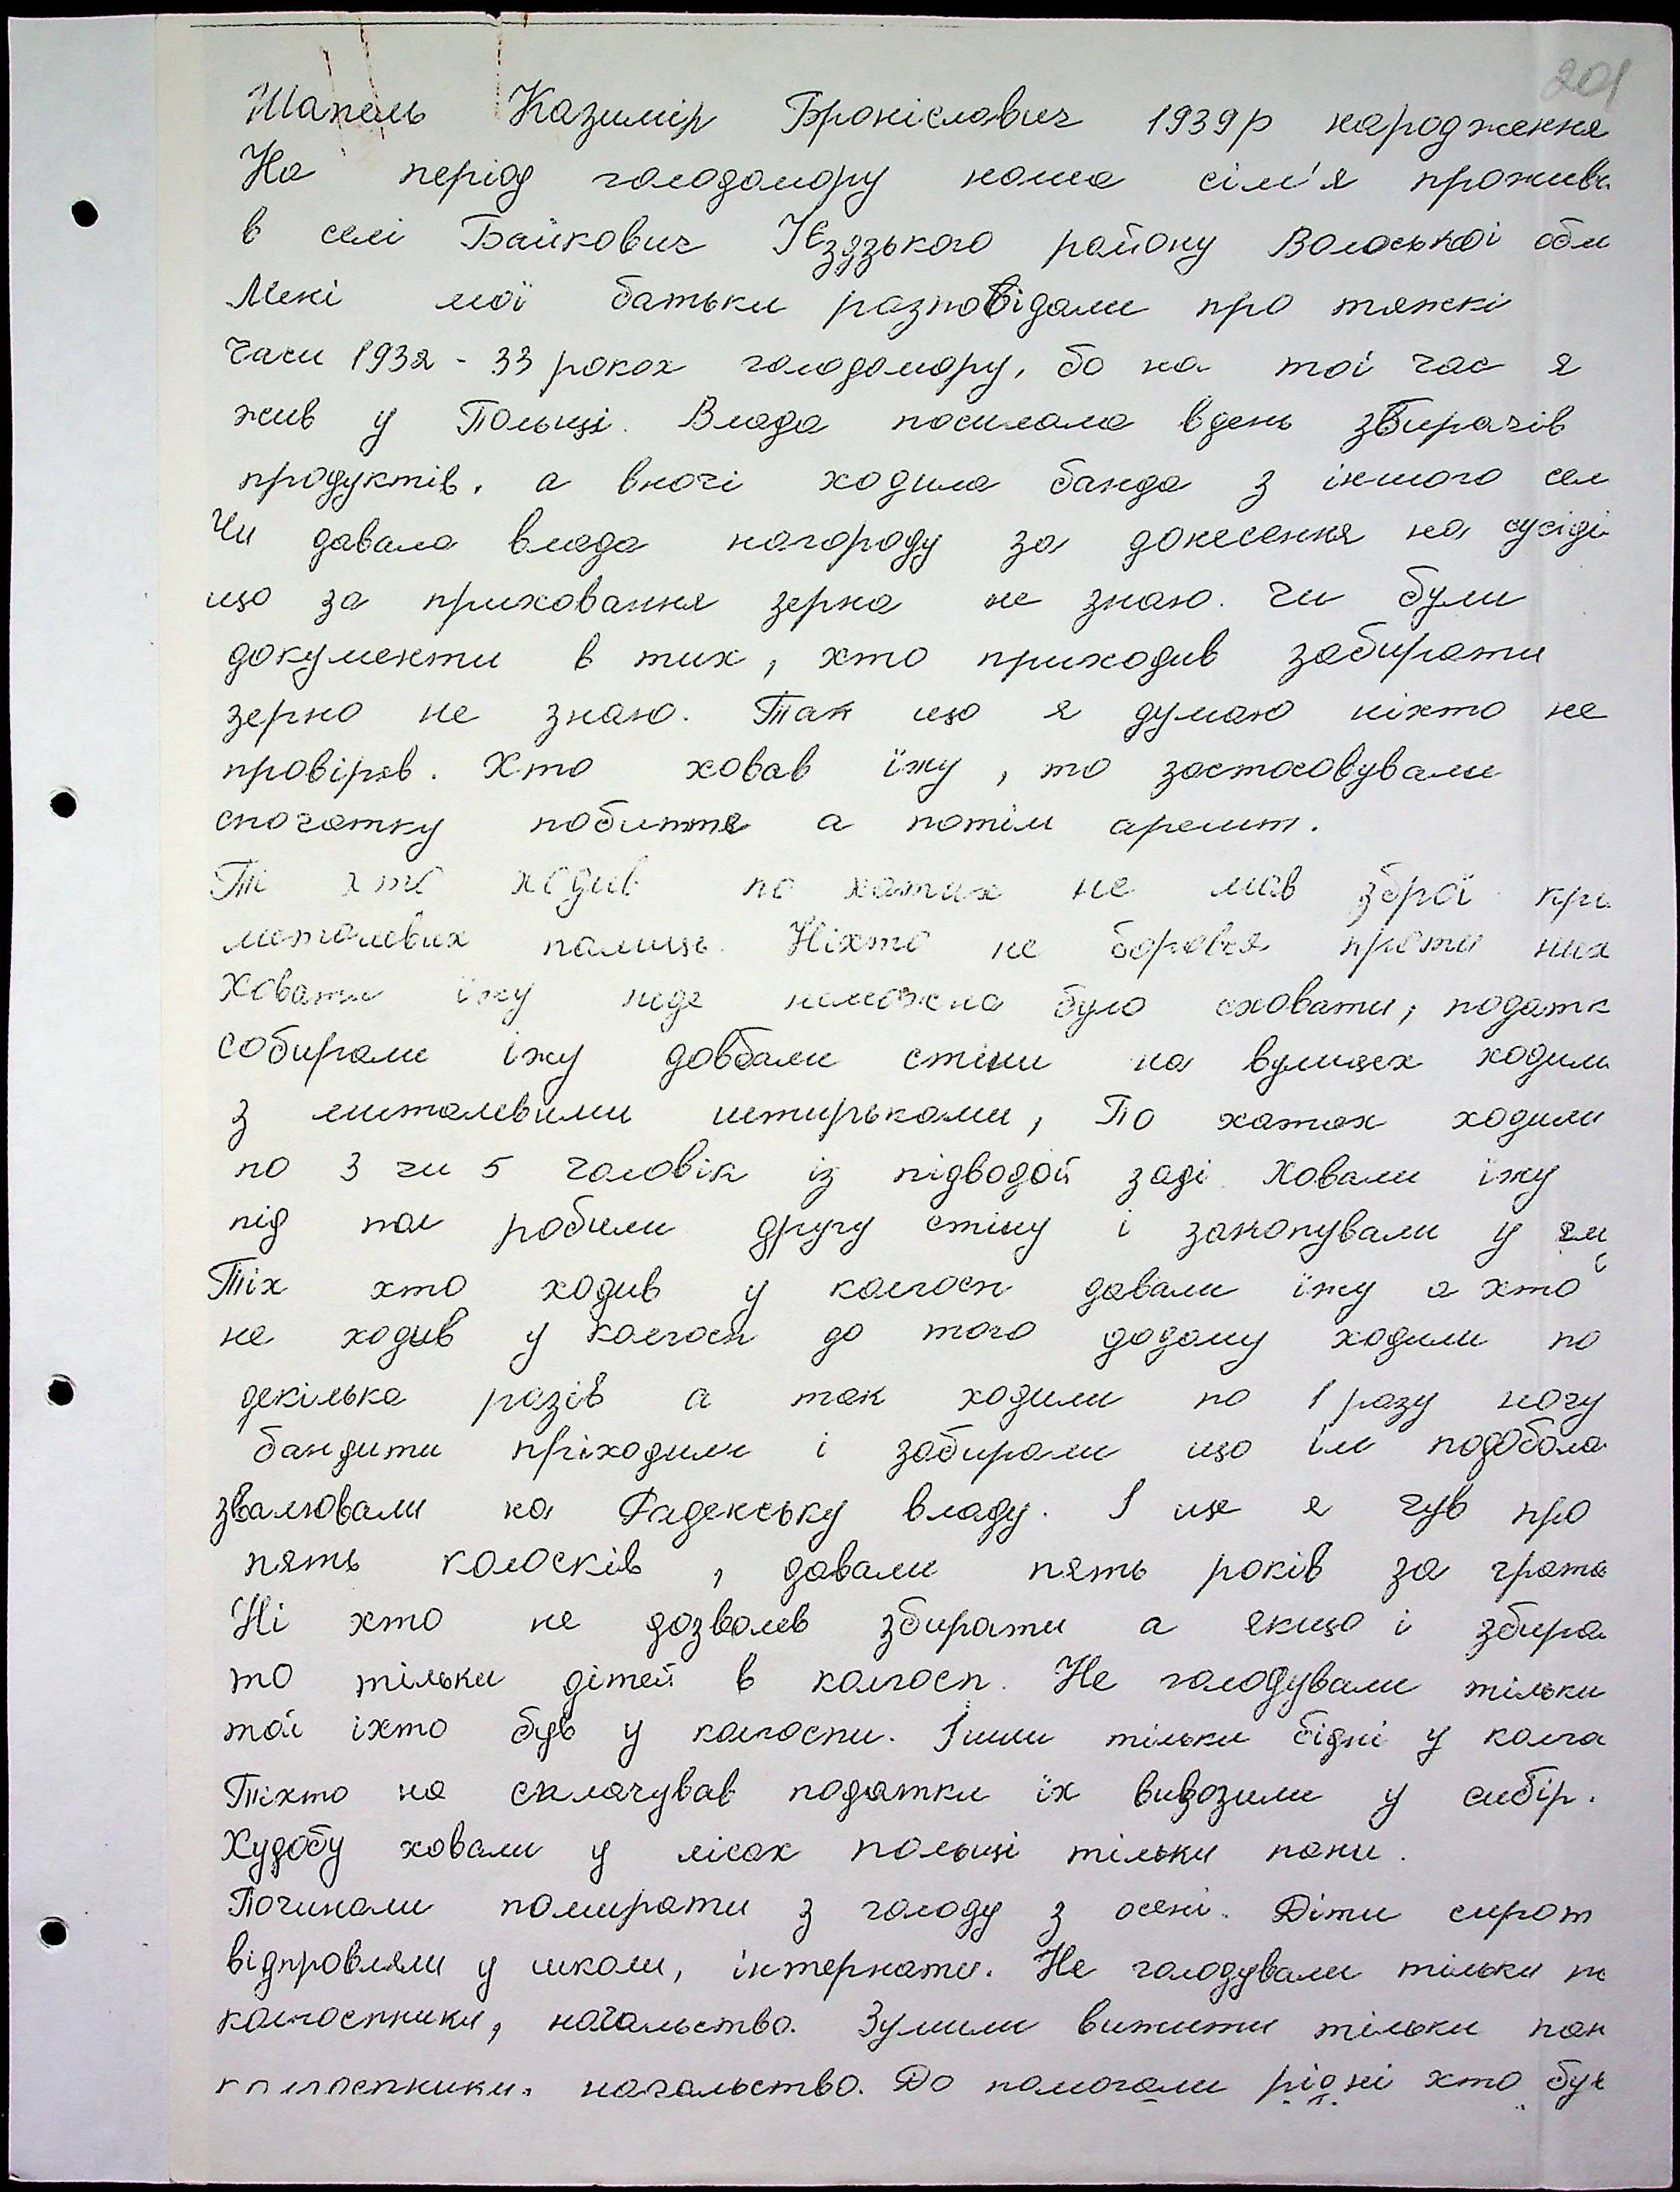 201
Шапель Казимір Броніславич 1939р народження
На період голодомору наша сім'я прожива
в селі Байкович районy Волоської обл
Мені мої батьки розповідали про тяжкі
часи 1932 - 33 роках голодомору, бо на той час я
жив у Польщі. Влада посилала вдень збирачів
продуктів, а вночі ходила банда з іншого сел
Чи давала влада нагороду за донесення на сусіді
що за приховання зерна не знаю. Чи були
документи в тих, хто приходив забирати
зерно не знаю. Так що я думаю ніхто не
провіряв. Хто ховав їжу, то застосовували
спочатку побиття а потім арешт.
Ті хто ходив по хатах не мав зброї крі
металевих палиць. Ніхто не боровся проти них
Ховати їжу нide неможна було сховати, податк
собирали їжу довбали стіни на вулицях ходили
з миталевими штирьками, По хатах ходили
по 3 чи 5 чоловік із підводой заді. Ховали їжу
під пол робили другу стіну і закопували у ям
Тіх хто ходив у колгосп давали їжу а хто
не ходив у колгосп до того додому ходили по
декілька разів а так ходили по 1 разу ночу
бандити пріходили і забирали що їм подобала
звалювали на Радекську владу. І це я чув про
пять колосків, давали пять років за грата
Ні хто не дозволяв збирати а якщо і збира
то тільки дітей в колгосп. Не голодували тільки
той іхто був у колгоспи. Ішли тільки бідні у колго
Тіхто на сплачував податки їх вивозили у сибір.
Худобу ховали у лісах польщі тільки пани.
Починали помирати з голоду з осені. Діти сирот
відправляли у школи, інтернати. Не голодували тільки п
колгоспники, начальство. Зуміли вижити тільки пан
колгоспники, начальство. До помогали рідні хто був